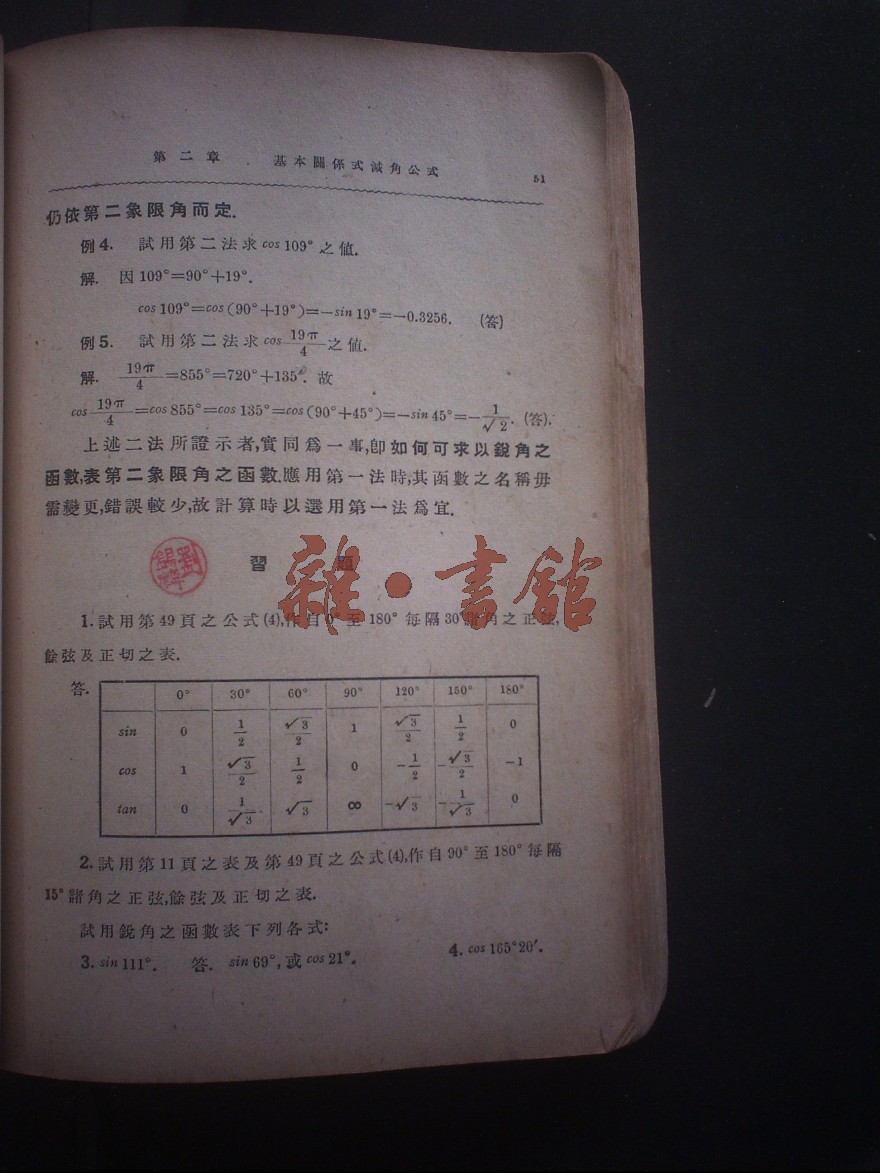 第二章 基本關係式減角公式 51
仍依第二象限角而定.
例4. 試用第二法求 cos 109° 之値.
解. 因 109°=90°+19°.
cos 109°=cos (90°+19°)=-sin 19°=-0.3256. (答)
例5. 試用第二法求 cos 19π/4 之値.
解. 19π/4=855°=720°+135°. 故
cos 19π/4=cos 855°=cos 135°=cos (90°+45°)=-sin 45°=-1/√2. (答).
上述二法所證示者,實同爲一事,卽如何可求以銳角之
函數,表第二象限角之函數.應用第一法時,其函數之名稱毋
需變更,錯誤較少,故計算時以選用第一法爲宜.
習題
雜·書館
1. 試用第49頁之公式(4),作自0°至180°每隔30°諸角之正弦,
餘弦及正切之表.
答. 0° 30° 60° 90° 120° 150° 180°
sin 0 1/2 √3/2 1 √3/2 1/2 0
cos 1 √3/2 1/2 0 -1/2 -√3/2 -1
tan 0 1/√3 √3 ∞ -√3 -1/√3 0
2. 試用第11頁之表及第49頁之公式(4),作自90°至180°每隔
15°諸角之正弦,餘弦及正切之表.
試用銳角之函數表下列各式:
3. sin 111°. 答. sin 69°, 或 cos 21°. 4. cos 165°20′.